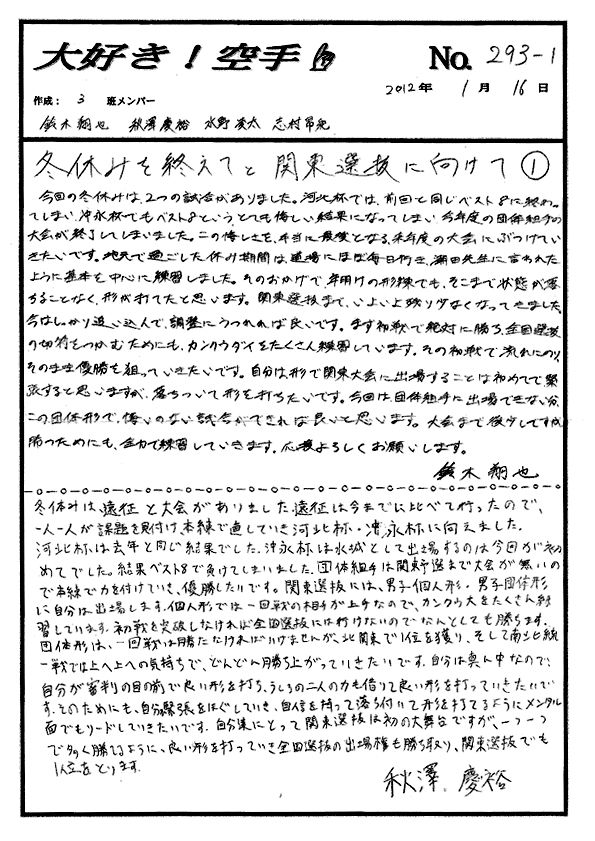 大好き！空手
No. 293-1
作成： 3 班メンバー
2012年 1月 16日
鈴木翔也 秋澤慶裕 水野凌太 志村昂亮
冬休みを終えてと関東選抜に向けて①
今回の冬休みは、2つの試合がありました。河北杯では、前回と同じベスト8に終わっ
てしまい、沖永杯でもベスト8という、とても悔しい結果になってしまい今年度の団体組手の
大会が終了してしまいました。この悔しさを、本当に最後となる、来年度の大会にぶつけてい
きたいです。地元で過ごした休み期間は、道場にほぼ毎日行き、瀬田先生に言われた
ように基本を中心に練習しました。そのおかげで、年明けの形練でも、そこまで状態が落
ちることなく、形が打てたと思います。関東選抜まで、いよいよ残り少なくなってきました。
今はしっかり追い込んで、調整にうつれれば良いです。まず初戦で絶対に勝ち、全国選抜
の切符をつかむためにも、カンクウダイをたくさん練習しています。その初戦で流れにのり、
そのまま優勝を狙っていきたいです。自分は形で関東大会に出場することは初めてで緊
張すると思いますが、落ちついて形を打ちたいです。今回は団体組手に出場できない分、
この団体形で、悔いのない試合ができれば良いと思います。大会まで後少しですが
勝つためにも、全力で練習していきます。応援よろしくお願いします。
鈴木翔也
冬休みは遠征と大会がありました遠征は今までに比べて行ったので、
一人一人が課題を見付け、本練で直していき河北杯・沖永杯に向えました。
河北杯は去年と同じ結果でした。沖永杯は水城として出場するのは今回が初
めてでした。結果ベスト8で負けてしまいました。団体組手は関東予選まで大会が無いの
で本練で力を付けていき、優勝したいです。関東選抜には、男子個人形・男子団体形
に自分は出場します。個人形では一回戦の相手が上手なので、カンクウ大をたくさん練
習しています。初戦を突破しなければ全国選抜には行けないのでなんとしても勝ちます。
団体形は、一回戦は勝たなければいけませんが、北関東で1位を獲り、そして南北統
一戦では上へ上への気持ちで、どんどん勝ち上がっていきたいです。自分は真ん中なので、
自分が審判の目の前で良い形を打ち、うしろの二人の力も借りて良い形を打っていきたいで
す。そのためにも、自分緊張をほぐしていき、自信を持って落ち付いて形を打てるようにメンタル
面でもリードしていきたいです。自分達にとって関東選抜は初の大舞台ですが、一つ一つ
で多く勝てるように、良い形を打っていき全国選抜の出場権も勝ち取り、関東選抜でも
1位をとります。
秋澤慶裕